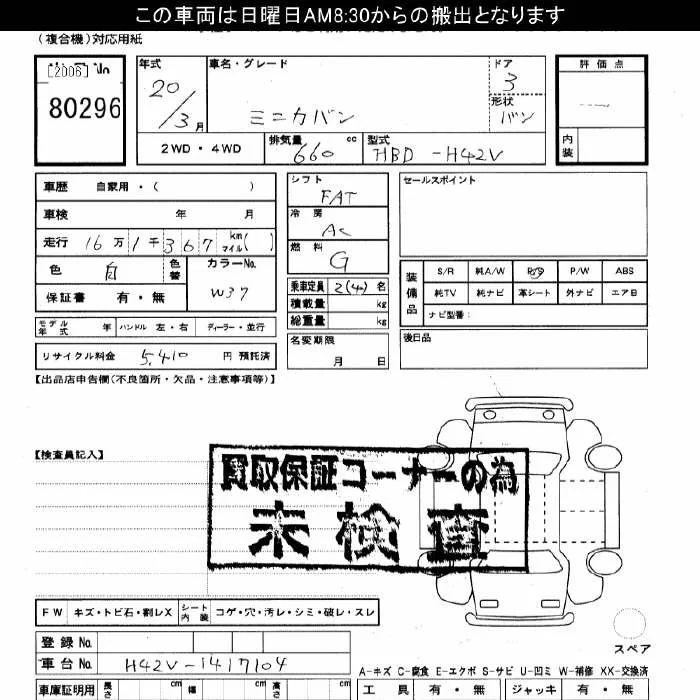 この車両は日曜日AM8:30からの搬出となります
(複合機)対応用紙
[2006]
80296
年式 20/3月
車名・グレード
ミニカバン
ドア 3
形状 バン
評価点
内装
2WD・4WD
排気量 660 cc
型式 HBD-H42V
車歴 自家用・( )
車検 年 月
走行 16万1千367 km マイル( )
色 白 色替
カラーNo. W37
保証書 有・無
モデル年式 年 ハンドル 左・右 ディーラー・並行
リサイクル料金 5,410 円 預託済
シフト FAT
冷房 AC
燃料 G
乗車定員 2(4)名
積載量 kg
総重量 kg
名変期限 月 日
セールスポイント
装備品
S/R 純A/W P/S P/W ABS
純TV 純ナビ 革シート 外ナビ エアB
ナビ型番:
後日品
【出品店申告欄(不良箇所・欠品・注意事項等)】
【検査員記入】
買取保証コーナーの為
未検査
FW キズ・トビ石・割レX シート内装 コゲ・穴・汚レ・シミ・破レ・スレ
登録No.
スペア
車台No. H42V-1417104
A-キズ C-腐食 E-エクボ S-サビ U-凹ミ W-補修 XX-交換済
車庫証明用 長さ cm 幅 cm 高さ cm
工具 有・無 ジャッキ 有・無